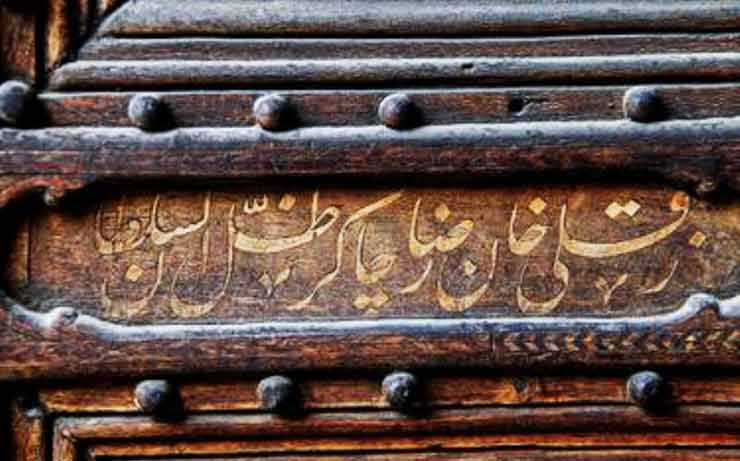 ز قلی خان رضا چاکر ظلّ السلطان